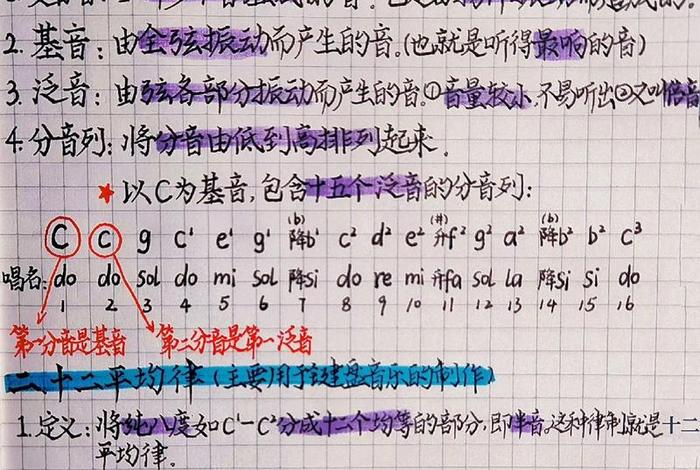 2. 基音：由全弦振动而产生的音。(也就是听得最响的音)
3. 泛音：由弦各部分振动而产生的音。①音量较小，不易听出②又叫倍音
4. 分音列：将分音由低到高排列起来。
★以C为基音，包含十五个泛音的分音列：
C c g c¹ e¹ g¹ (b)降b¹ c² d² e² (#)升f² g² a² (b)降b² b² c³
唱名：do do sol do mi sol 降si do re mi 升fa sol la 降si si do
1 2 3 4 5 6 7 8 9 10 11 12 13 14 15 16
第一分音是基音 第二分音是第一泛音
二、十二平均律 (主要用于键盘音乐的制作)
1. 定义：将纯八度如C¹-C²分成十二个均等的部分，即半音。这种律制就是十二
平均律。